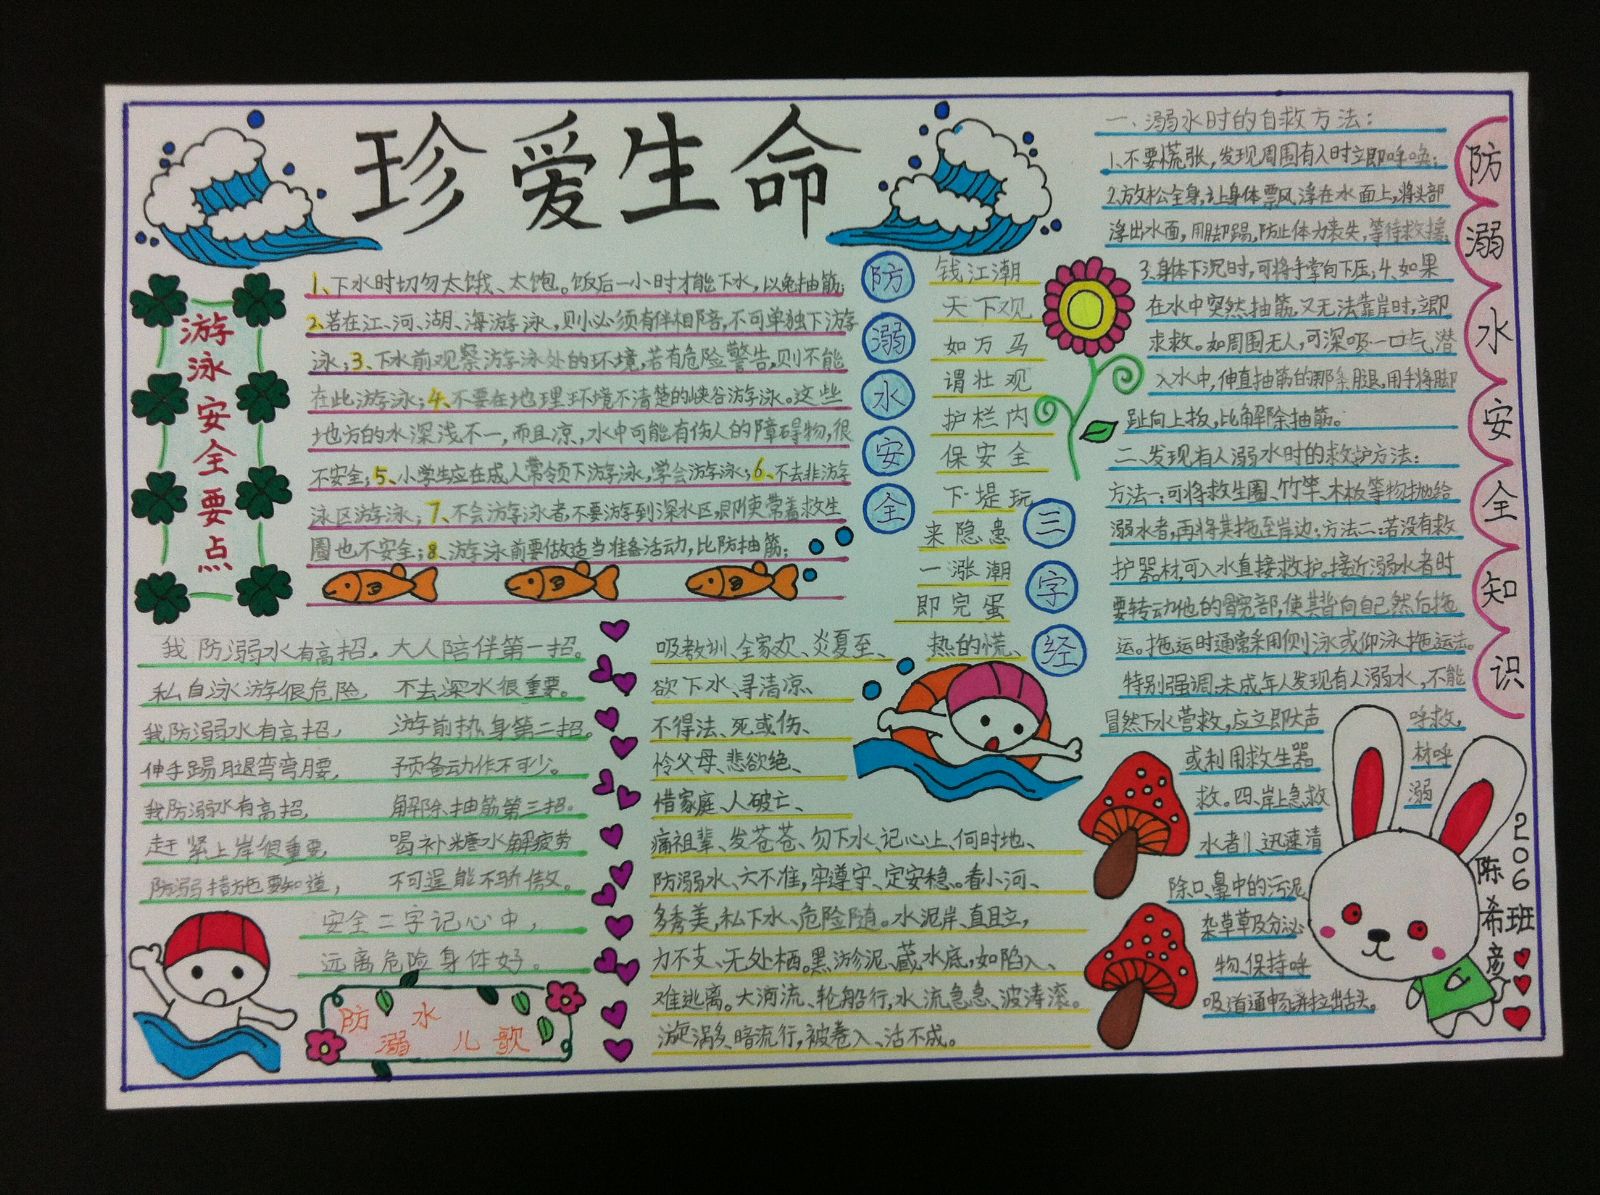 珍爱生命
游泳安全要点
1、下水时切勿太饿、太饱。饭后一小时才能下水,以免抽筋;
2、若在江、河、湖、海游泳,则必须有伴相陪,不可单独下游
泳;3、下水前观察游泳处的环境,若有危险警告,则不能
在此游泳;4、不要在地理环境不清楚的峡谷游泳。这些
地方的水深浅不一,而且凉,水中可能有伤人的障碍物,很
不安全;5、小学生应在成人带领下游泳,学会游泳;6、不去非游
泳区游泳;7、不会游泳者,不要游到深水区,即使带着救生
圈也不安全;8、游泳前要做适当准备活动,比防抽筋;
防溺水安全
三字经
钱江潮
天下观
如万马
谓壮观
护栏内
保安全
下堤玩
来隐患
一涨潮
即完蛋
热的慌、
吸教训、全家欢、炎夏至、
欲下水、寻清凉、
不得法、死或伤、
怜父母、悲欲绝、
借家庭、人破亡、
痛祖辈、发苍苍、勿下水、记心上、何时地、
防溺水、六不准,牢遵守、定安稳。看小河、
多秀美,私下水、危险随。水泥岸、直且立,
力不支、无处栖。黑淤泥、藏水底,如陷入、
难逃离。大河流、轮船行,水流急急、波涛滚。
漩涡多、暗流行,被卷入、活不成。
我防溺水有高招。大人陪伴第一招。
私自泳游很危险,不去深水很重要。
我防溺水有高招,游前热身第二招。
伸手踢腿弯弯腰,预备动作不可少。
我防溺水有高招,解除抽筋第三招。
赶紧上岸很重要,喝补糖水解疲劳
防溺措施要知道,不可逞能不骄傲。
安全二字记心中,
远离危险身体好。
防溺水儿歌
防溺水安全知识
一、溺水时的自救方法:
1、不要慌张,发现周围有人时立即呼唤;
2、放松全身,让身体票风浮在水面上,将头部
浮出水面,用脚踢,防止体力丧失,等待救援,
3、身体下沉时,可将手掌向下压;4、如果
在水中突然抽筋,又无法靠岸时,立即
求救。如周围无人,可深吸一口气潜
入水中,伸直抽筋的那条腿,用手将脚
趾向上扳,比解除抽筋。
二、发现有人溺水时的救护方法:
方法一:可将救生圈、竹竿、木板等物抛给
溺水者,再将其拖至岸边;方法二:若没有救
护器材,可入水直接救护。接近溺水者时
要转动他的髋部,使其背向自己然后拖
运。拖运时通常采用侧泳或仰泳拖运法。
特别强调:未成年人发现有人溺水,不能
冒然下水营救,应立即大声呼救,
或利用救生器材呼
救。四、岸上急救溺
水者1、迅速清
除口、鼻中的污泥、
杂草草及分泌
物、保持呼
吸道通畅,并拉出舌头。
206班
陈希彦